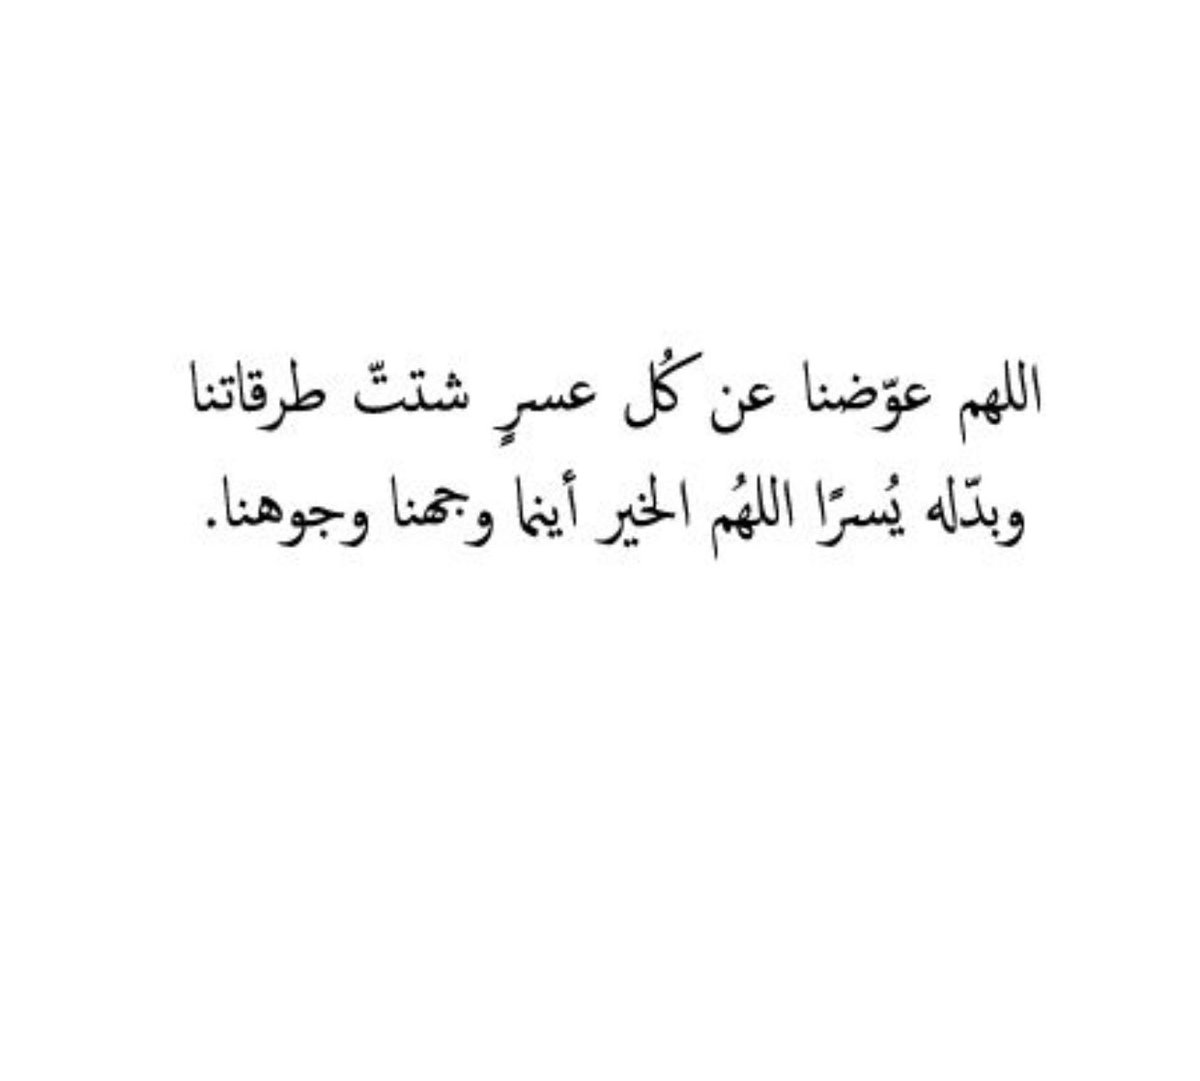 اللهم عوّضنا عن كُل عسرٍ شتتّ طرقاتنا
وبدّله يُسرًا اللهُم الخير أينما وجهنا وجوهنا.